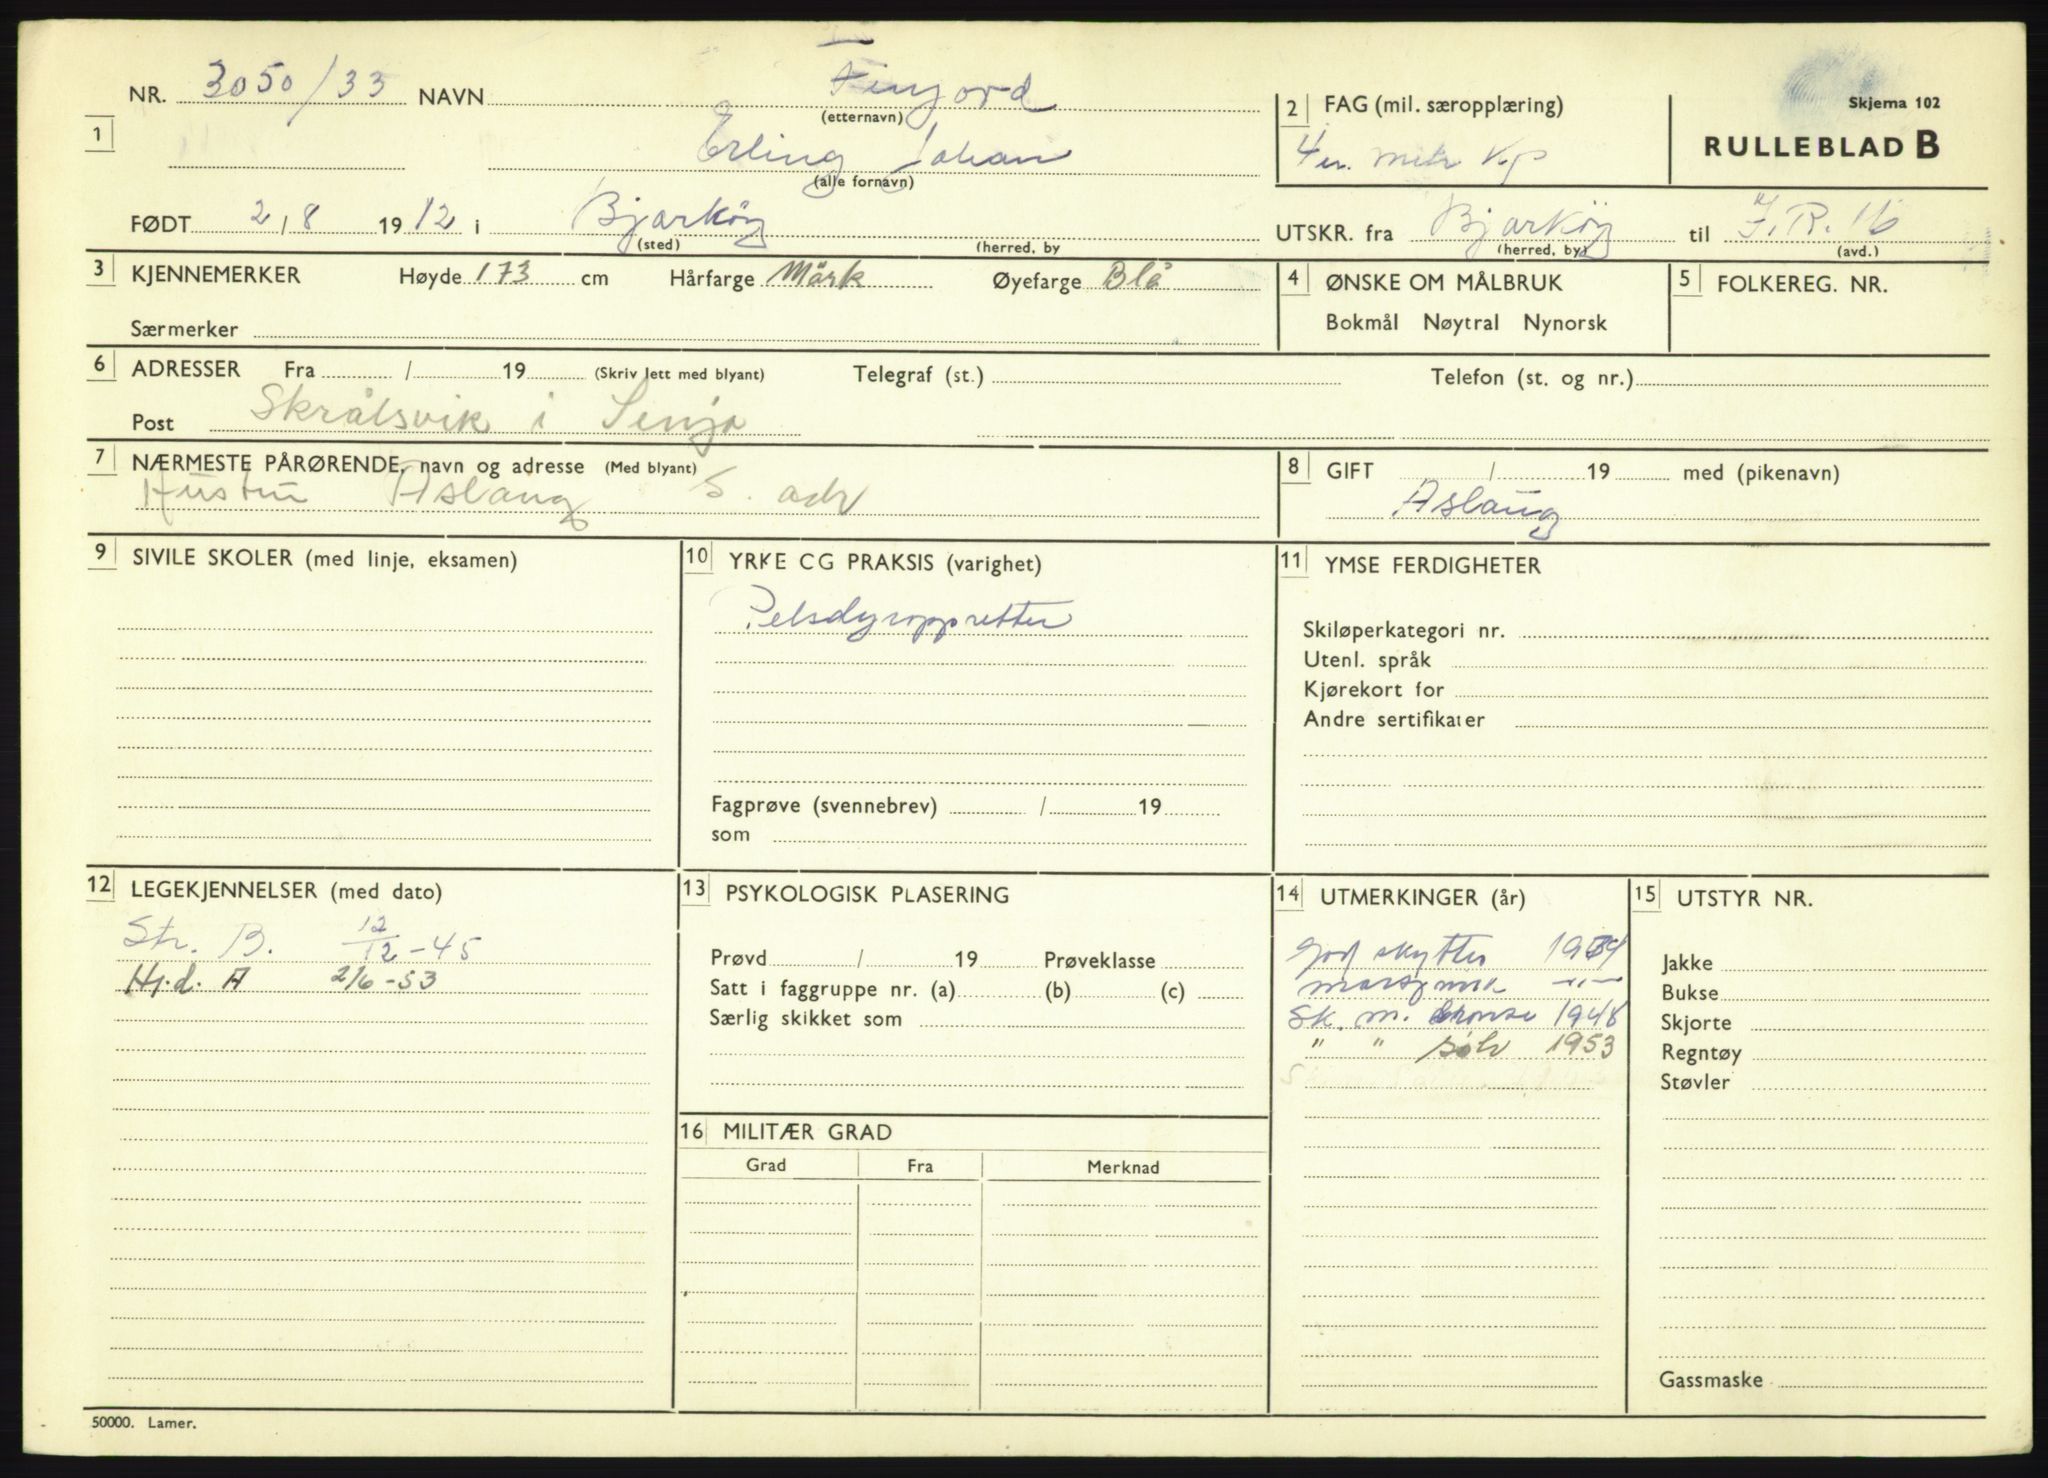 NR. 3050/33 NAVN Finjord
(etternavn)
1
Erling Johan
(alle fornavn)
FØDT 2/8 1912 i Bjarköy
(sted) (herred, by
2 FAG (mil. særopplæring)
4 m. mitr Kp
Skjema 102
RULLEBLAD B
UTSKR. fra Bjarköy til I.R. 16
(herred, by) (avd.)
3 KJENNEMERKER Høyde 173 cm Hårfarge Mörk Øyefarge Blå
Særmerker
4 ØNSKE OM MÅLBRUK
Bokmål Nøytral Nynorsk
5 FOLKEREG. NR.
6 ADRESSER Fra / 19 (Skriv lett med blyant) Telegraf (st.) Telefon (st. og nr.)
Post Skrålsvik i Senja
7 NÆRMESTE PÅRØRENDE, navn og adresse (Med blyant)
Hustru Aslaug S. adr
8 GIFT / 19 med (pikenavn)
Aslaug
9 SIVILE SKOLER (med linje, eksamen)
10 YRKE CG PRAKSIS (varighet)
Pelsdyroppretter
Fagprøve (svennebrev) / 19
som
11 YMSE FERDIGHETER
Skiløperkategori nr.
Utenl. språk
Kjørekort for
Andre sertifikater
12 LEGEKJENNELSER (med dato)
Str. B. 12/12-45
Hj.d. A 2/6-53
13 PSYKOLOGISK PLASERING
Prøvd / 19 Prøveklasse
Satt i faggruppe nr. (a) (b) (c)
Særlig skikket som
14 UTMERKINGER (år)
God skytter 1934
—"—
Sk. m. bronse 1948
" " sølv 1953
15 UTSTYR NR.
Jakke
Bukse
Skjorte
Regntøy
Støvler
Gassmaske
16 MILITÆR GRAD
Grad Fra Merknad
50000. Lamer.